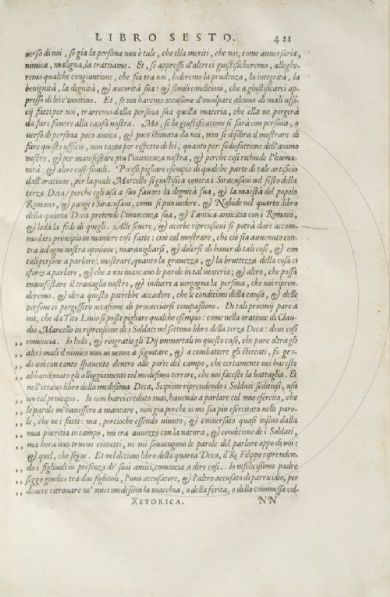 LIBRO SESTO. 421
verso di noi, se già la persona non è tale, che ella meriti, che noi, come avversaria,
nimica, maligna, la trattiamo. Et, se appresso d'altrei giustificheremo, alleghe-
remo qualche congiuntione, che sia tra noi, loderemo la prudenza, la integrità, la
benignità, la dignità, & autorità sua: & simili conditioni, che a giustificarci ap-
presso di lei c'invitino. Et, se noi haremo occasione d'incolpare alcuno di mali uffi-
cij fatti per noi, trarremo dalla persona sua quella materia, che ella ne porgerà
da fare favore alla causa nostra. Ma, se la giustificatione si farà con persona, o
verso di persona poco amica, & poco stimata da noi, non si disdirà il mostrare di
fare questo ufficio, non tanto per rispetto di lei, quanto per sodisfattione dell'animo
nostro, & per manifestare più l'innocenza nostra, & perche così richiede l'huma-
nità: & altre cose simili. Possi pigliare esempio di qualche parte di tale artificio
dall'oratione, per laquale Marcello si giustifica contra i Siracusani nel sesto della
terza Deca: perche egli usa a suo favore la dignità sua, & la maestà del popolo
Romano, & punge i Siracusani, come si può vedere. & Nabide nel quarto libro
della quarta Deca pretende l'innocenza sua, & l'antica amicitia con i Romani,
& loda la fede di quegli. Alle severe, & acerbe riprensioni si potrà dare accom-
modato principio in maniere così fatte: cioè col mostrare, che ciò sia avvenuto con-
tra ad ogni nostra opinione; maravigliarsi, & dolersi di haver di tali cose, & con
tali persone a parlare; mostrare, quanto la gravezza, & la bruttezza della cosa ci
sforzi a parlare, & che a noi mancano le parole in tal materia; & altro, che possa
manifestare il travaglio nostro, & indurre a vergogna la persona, che noi ripren-
diremo. & oltra questo potrebbe accadere, che le conditioni della causa, & delle
persone ci porgessero occasione di procacciarsi compassione. Di tali proemij pare à
me, che da Tito Livio si possa pigliare qualche esempio: come nella oratione di Clau-
dio Marcello in riprensione de i Soldati nel settimo libro della terza Deca: dove così
,, comincia. Io lodo, & ringratio gli Dij immortali in questo caso, che pure oltra gli
,, altri mali il nimico non vi venne à seguitare, & a combattere gli steccati, fuggen-
,, do voi con tanto spavento dentro alle porte del campo, che certamente voi hareste
,, abbandonati gli alloggiamenti col medesimo terrore, che voi faceste la battaglia. Et
nell'ottavo libro della medesima Deca, Scipione riprendendo i Soldati seditiosi, usò
,, un tal principio. Io non harei creduto mai, havendo a parlare col mio esercito, che
,, le parole m'havessero a mancare, non già perche io mi sia più esercitato nelle paro-
,, le, che ne i fatti: ma, percioche essendo vivuto, & conversato quasi insino dalla
,, mia pueritia in campo, mi era avvezzo con la natura, & conditione de i Soldati,
,, ma hora mi mancano i concetti, ne mi sovvengono le parole del parlare appo di voi:
& quel, che segue. Et nel decimo libro della quarta Deca, il Re Filippo riprenden-
,, do i figliuoli in presenza de' suoi amici, comincia a dire così. Io infelicissimo padre
,, seggo giudice tra due figliuoli, l'uno accusatore, & l'altro accusato di parricidio, per
,, dovere ritrovare ne' miei medesimi la macchia, o della ferita, o della commessa col-
RETORICA. NN